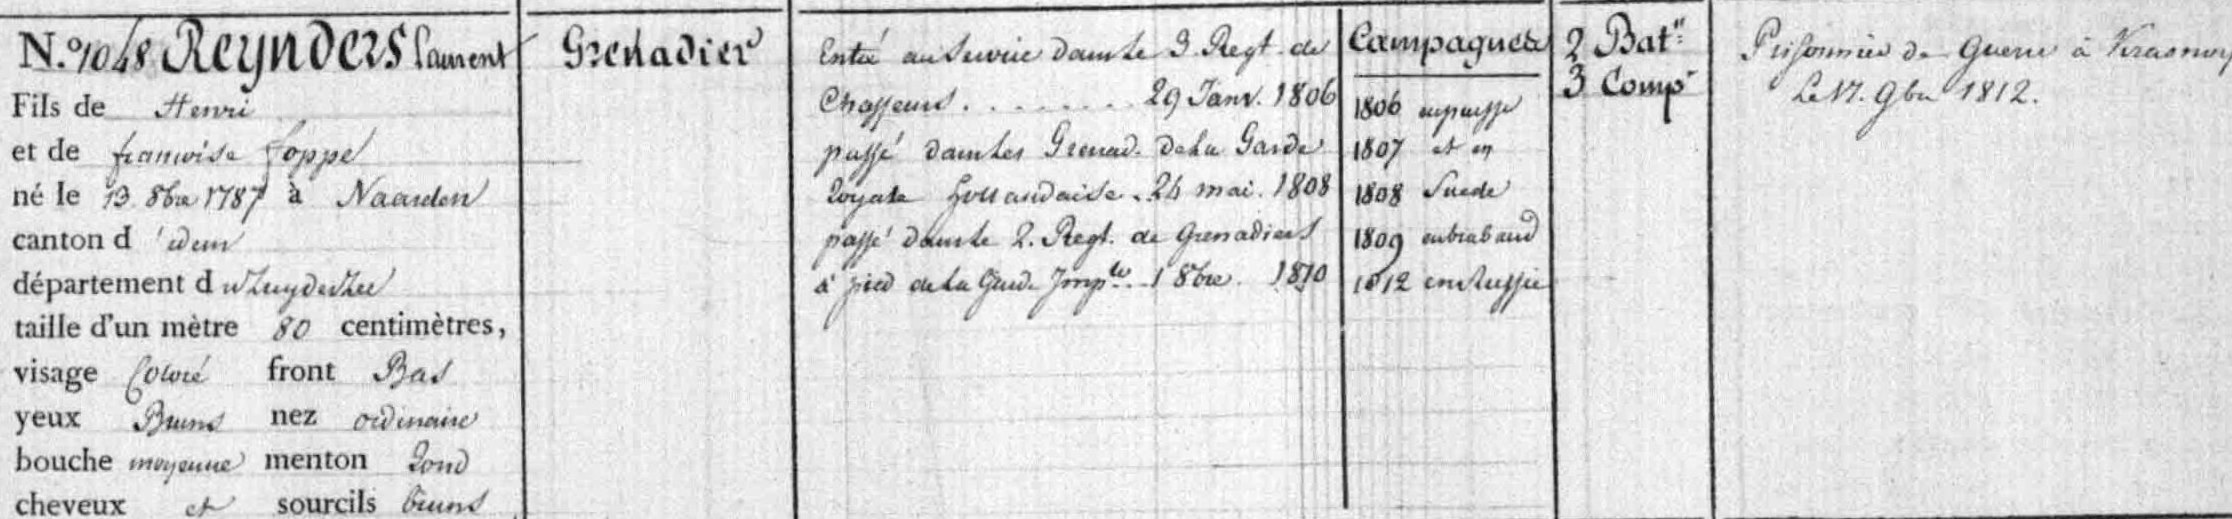 N.º 1048 Reynders Laurent
Fils de Henri
et de francoise foppe
né le 13 8bre 1787 à Naarden
canton d'idem
département du Zuyderzee
taille d'un mètre 80 centimètres,
visage Coloré front Bas
yeux Bruns nez ordinaire
bouche moyenne menton Rond
cheveux et sourcils bruns
Grenadier
Entré au Service dans le 3 Regt. de
Chasseurs . . . . . . . 29 Janv. 1806
passé dans les Grenad. de la Garde
Royale hollandaise . 24 mai . 1808
passé dans le 2. Regt. de Grenadiers
à pied de la Gard. Imple. 1 8bre 1810
Campagnes
1806 en prusse
1807 et en
1808 Suede
1809 en braband
1812 en Russie
2 Batn:
3 Comp
Prisonnier de Guerre à Krasnoy
Le 17. 9bre 1812.